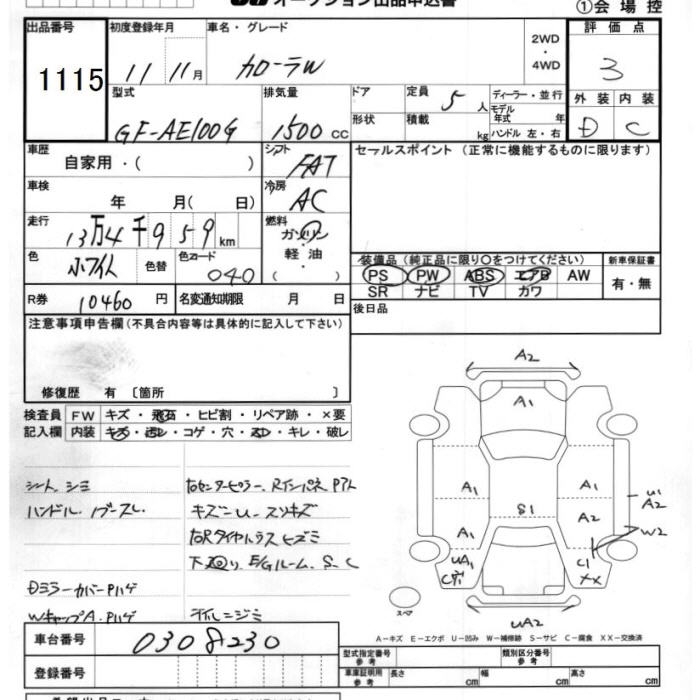 オークション出品申込書
①会場控
出品番号 初度登録年月 車名・グレード 評価点
1115 11 11月 カローラW 2WD・4WD 3
型式 排気量 ドア 定員 5人 ディーラー・並行 外装 内装
GF-AE100G 1500cc 形状 積載 kg モデル年式 年 D C
ハンドル 左・右
車歴 シフト セールスポイント(正常に機能するものに限ります)
自家用・( ) FAT
車検 冷房
年 月( 日) AC
走行 燃料
13万4千9 5 9km ガソリン
軽油・
色 色替 色コード 装備品(純正品に限り○をつけてください) 新車保証書
ホワイト 040 ( ) PS PW ABS エアB AW 有・無
SR ナビ TV カワ
R券 10460円 名変通知期限 月 日 後日品
注意事項申告欄(不具合内容等は具体的に記入して下さい)
修復歴 有〔箇所 〕
検査員 FW キズ・飛石・ヒビ割・リペア跡・×要
記入欄 内装 キズ・汚レ・コゲ・穴・スレ・キレ・破レ
シート、シミ 右センターピラー、Rインパネ
ハンドル、
キズ
ヒズミ
下廻り、E/Gルーム、S、C
DミラーカバーPハゲ
WキャップA、Pハゲ
A2
A1
A1 A1 U1
S1 A2
A1 W2
UA1 C1
XX
スペア
UA2
A−キズ E−エクボ U−凹み W−補修跡 S−サビ C−腐食 XX−交換済
車台番号 0308230
登録番号
型式指定番号 参考 類別区分番号 参考
車庫証明用 参考 長さ cm 幅 cm 高さ cm